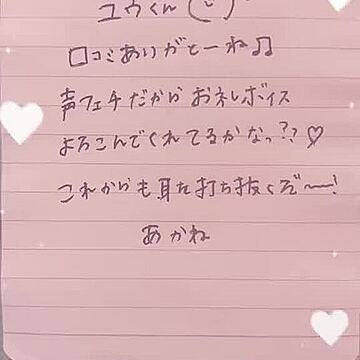 ユウくん(¨)
口コミありがとーね♫
声フェチだから おネしボイス
よろこんでくれてるかなっ??♡
これからも耳を打ち抜くぞ〜!
あかね